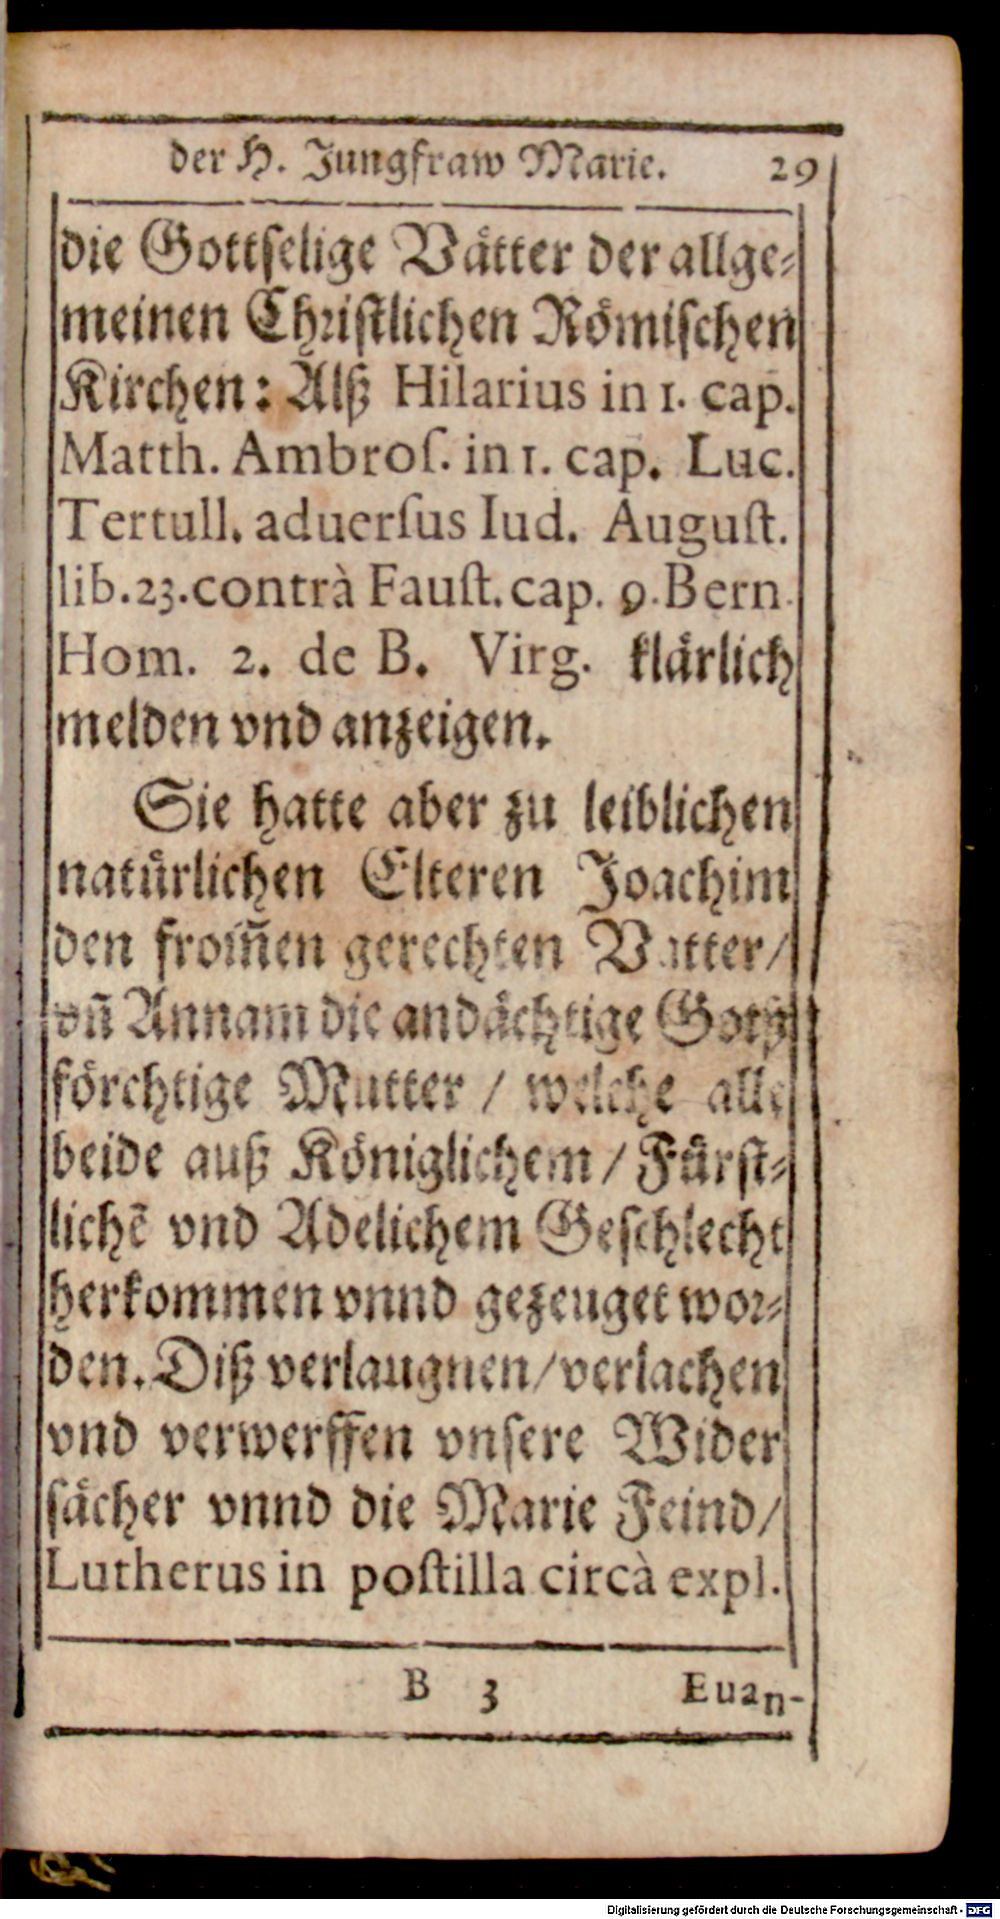 der H. Jungfraw Marie. 29
die Gottselige Vätter der allge-
meinen Christlichen Römischen
Kirchen: Alß Hilarius in 1. cap.
Matth. Ambroſ. in 1. cap. Luc.
Tertull. aduerſus Iud. Auguſt.
lib. 23. contrà Fauſt. cap. 9. Bern.
Hom. 2. de B. Virg. klärlich
melden vnd anzeigen.
Sie hatte aber zu leiblichen
natürlichen Elteren Joachim
den from̃en gerechten Vatter/
vñ Annam die andächtige Gotß
förchtige Mutter / welche alle
beide auß Königlichem / Fürst-
lichē vnd Adelichem Geschlecht
herkommen vnnd gezeuget wor-
den. Diß verlaugnen/verlachen
vnd verwerffen vnsere Wider
sächer vnnd die Marie Feind/
Lutherus in poſtilla circà expl.
B 3 Euan-
Digitalisierung gefördert durch die Deutsche Forschungsgemeinschaft - DFG